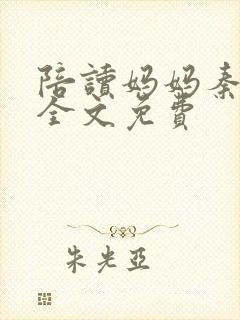 陪讀媽媽秦
全文免費
朱光亞